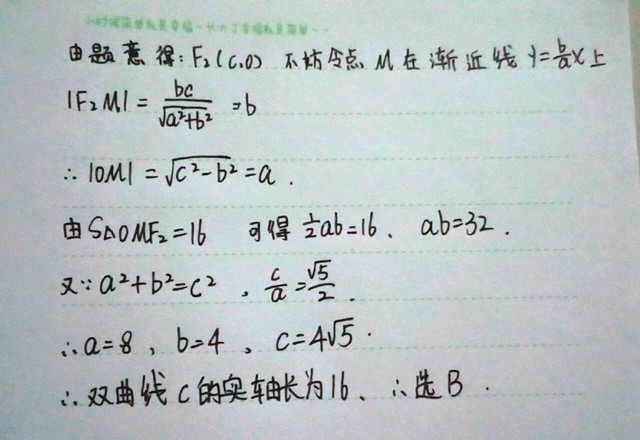 小时候简单就是幸福~长大了幸福就是简单~~
由题意得:F₂(c,0) 不妨令点M在渐近线 y=\frac{b}{a}x上
|F₂M|=\frac{bc}{\sqrt{a²+b²}}=b
∴|OM|=\sqrt{c²-b²}=a.
由S△OMF₂=16 可得 \frac{1}{2}ab=16、ab=32.
又∵a²+b²=c²,\frac{c}{a}=\frac{\sqrt{5}}{2}.
∴a=8,b=4、c=4\sqrt{5}.
∴双曲线C的实轴长为16、∴选B.